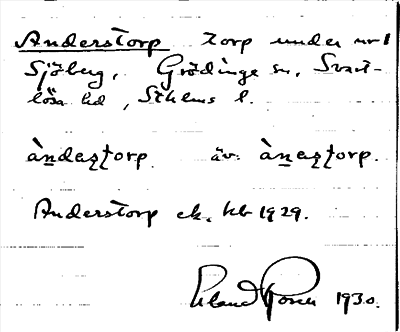 Anderstorp torp under nr 1
Sjöberg, Grödinge sn, Svart-
lösa hd, Sthlms l.
àndaʂʈorp. äv. ànaʂʈorp.
Anderstorp ek. kb 1929.
Erland Rosell 1930.